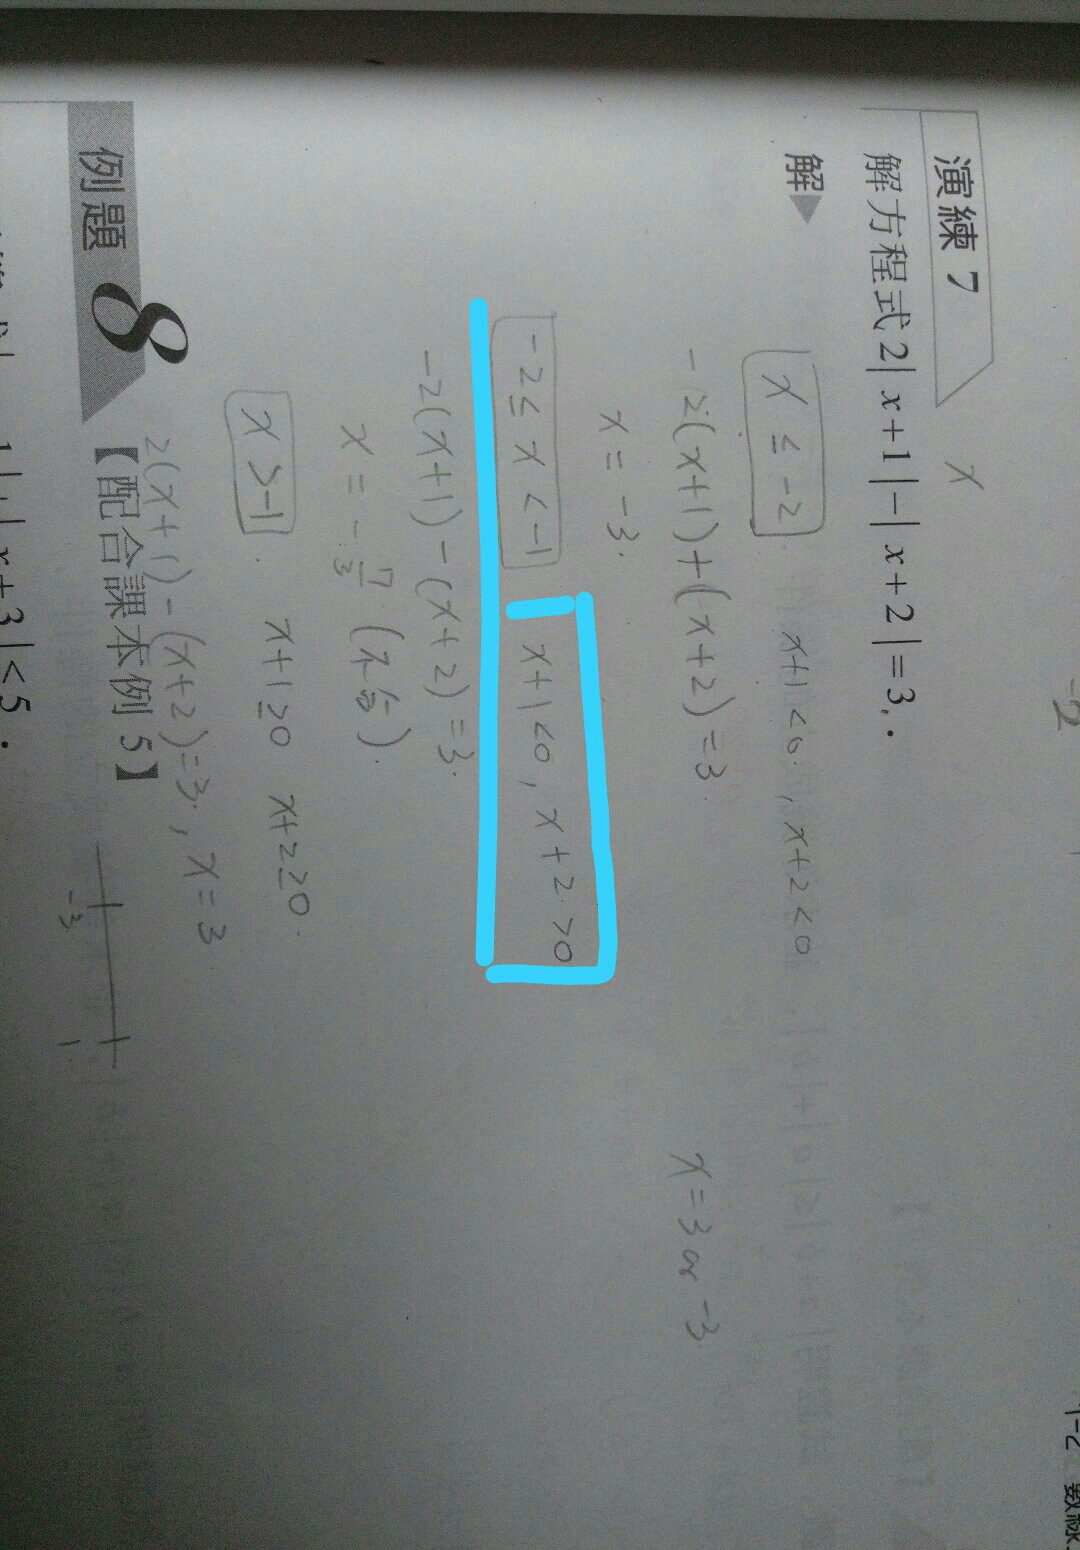 -2
演練 7 x
解方程式 2|x+1|-|x+2|=3.
解▼
x ≤ -2 x+1<0. , x+2<0
-2(x+1)+(x+2)=3 x=3 or -3
x = -3.
-2≤ x <-1 x+1<0, x+2>0
-2(x+1)-(x+2)=3.
x = -7/3 (不合).
x >-1 . x+1≥0 x+2≥0.
2(x+1)-(x+2)=3. , x=3
例題 8 【配合課本例 5】
-3 1